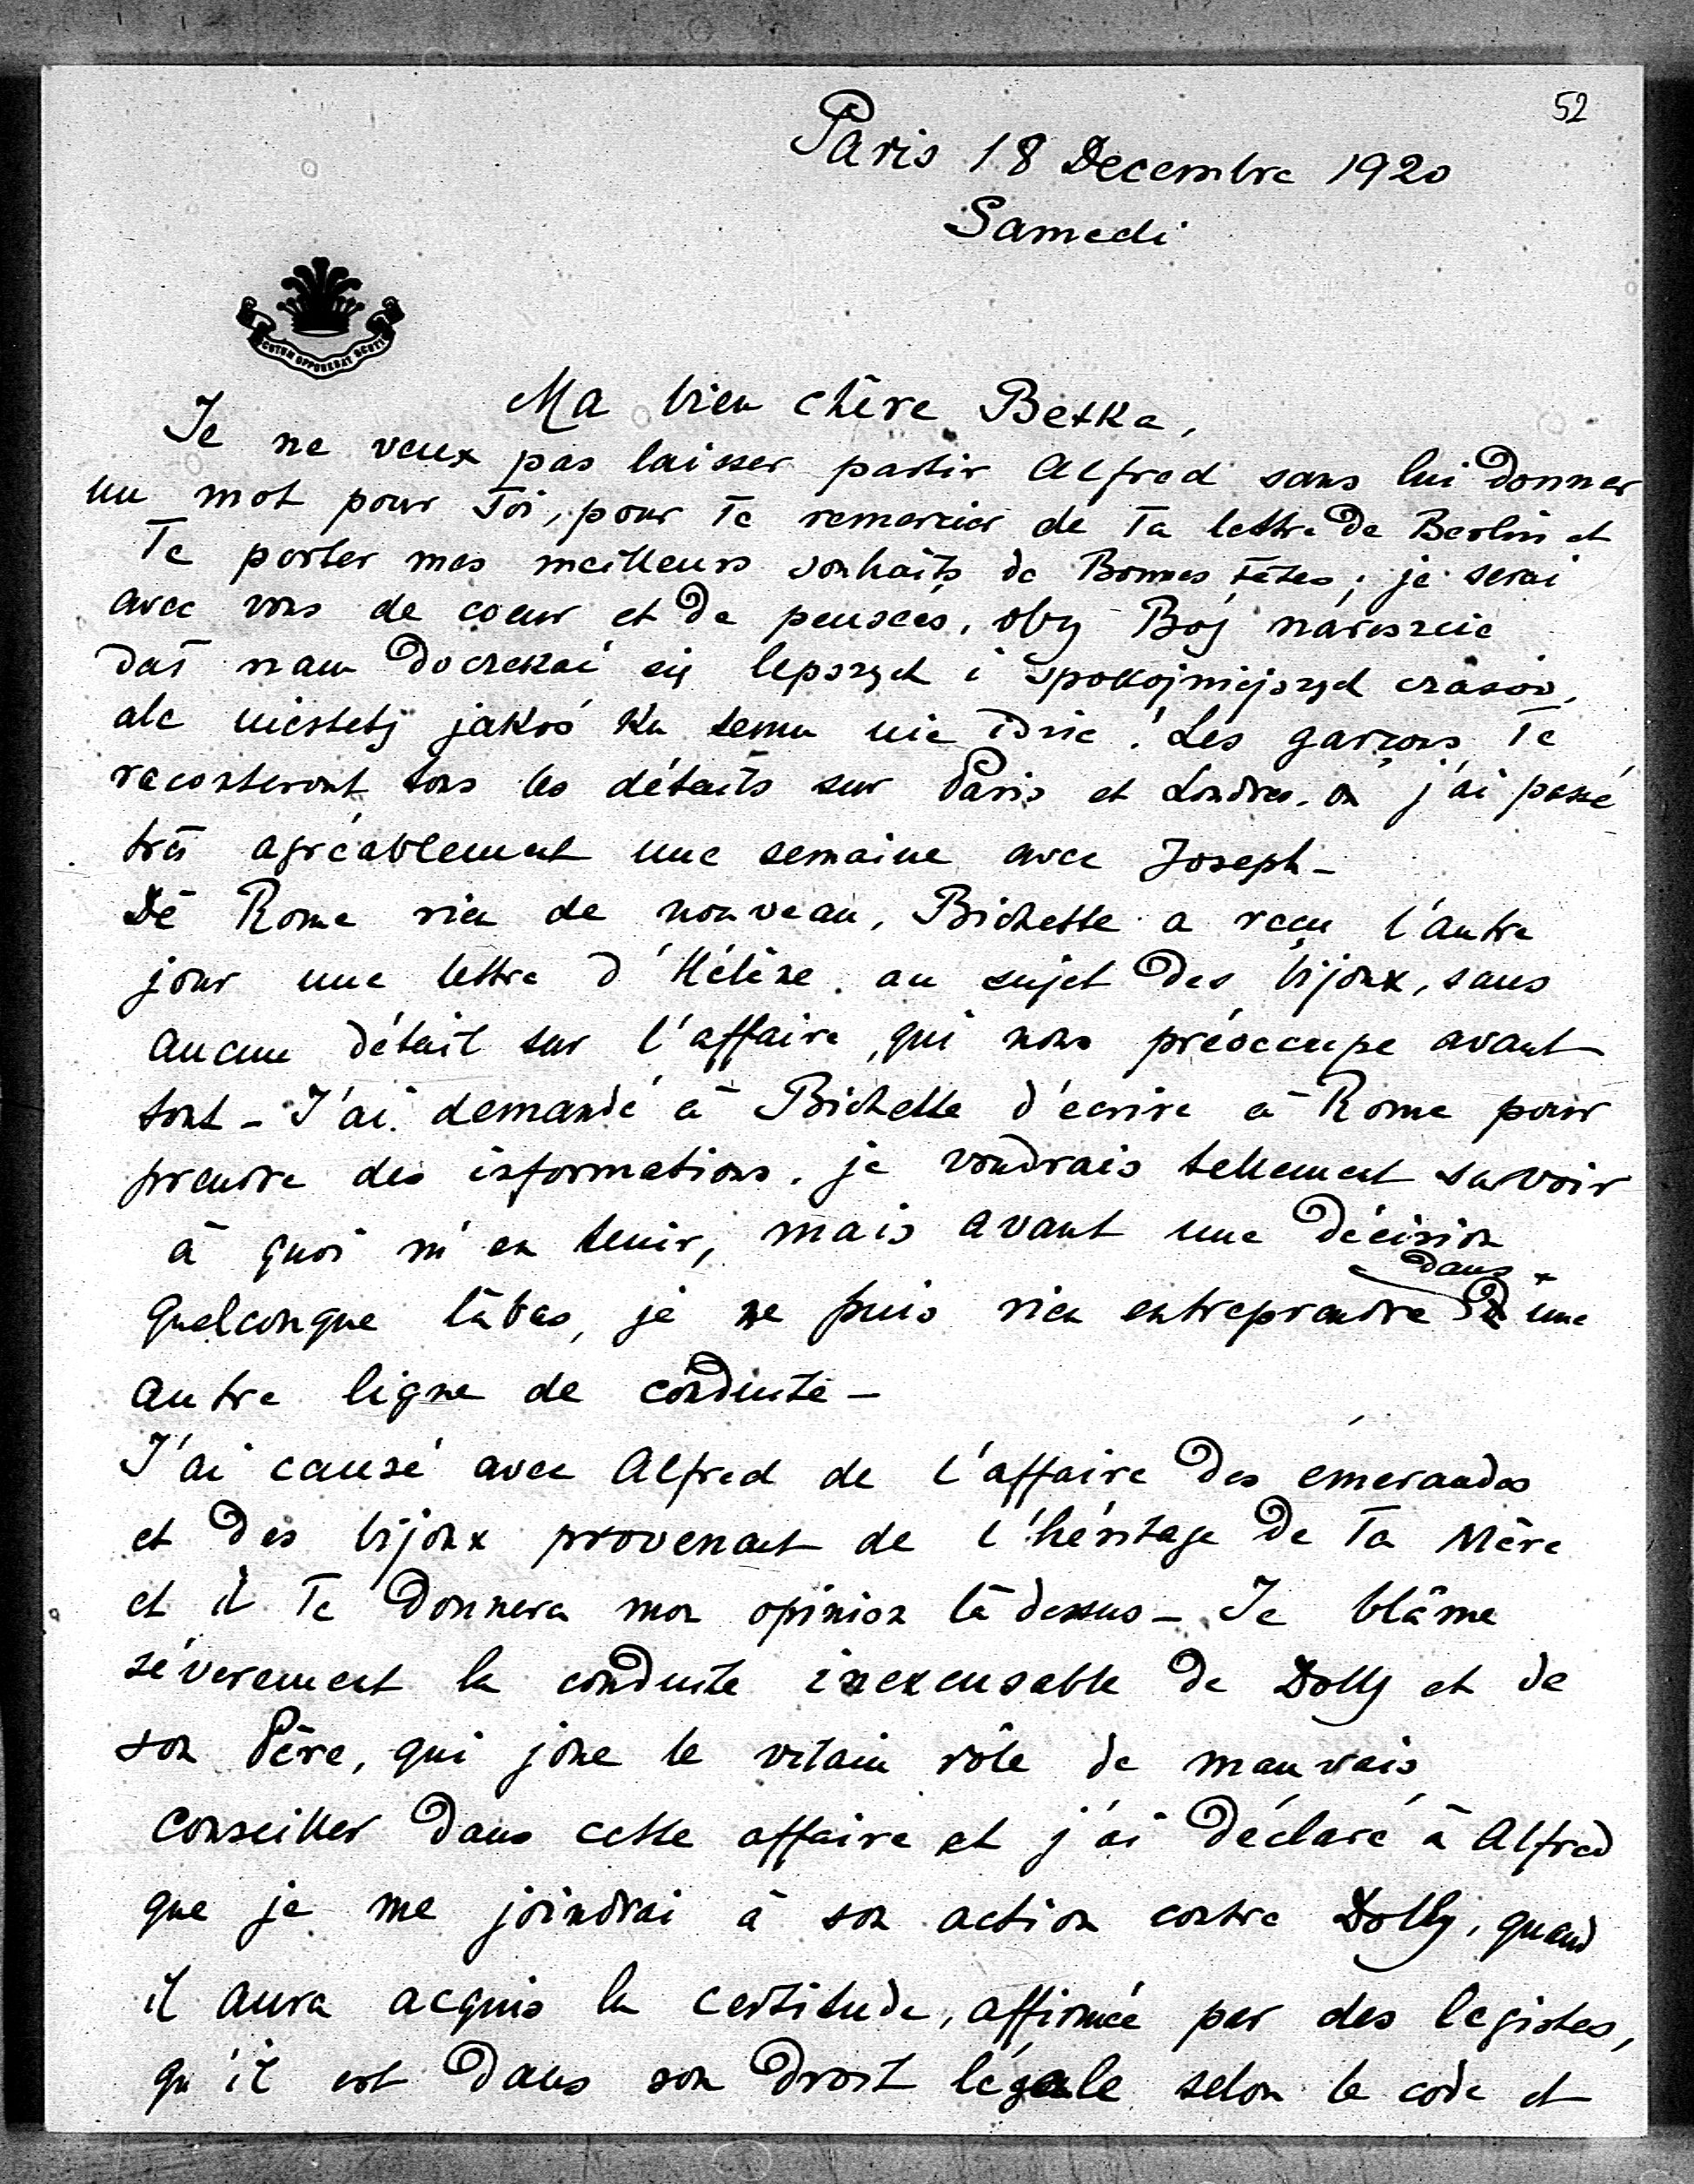 52
Paris 18 Decembre 1920
Samedi
SCUTUM OPPONEBAT SCUTIS
Ma bien chère Betka,
Je ne veux pas laisser partir Alfred sans lui donner
un mot pour Toi, pour Te remercier de Ta lettre de Berlin et
Te porter mes meilleurs souhaits de Bonnes fêtes; je serai
avec vous de coeur et de pensées, oby Bóg nareszcie
dał nam doczekać się lepszych i spokojniejszych czasów,
ale niestety jakoś ku temu nie idzie. Les garçons Te
raconteront tous les détails sur Paris et Londres, où j'ai passé
très agréablement une semaine avec Joseph –
De Rome rien de nouveau, Bichette a reçu l'autre
jour une lettre d'Hélène au sujet des bijoux, sans
aucun détail sur l'affaire, qui nous préoccupe avant
tout – J'ai demandé à Bichette d'écrire à Rome pour
prendre des informations, je voudrais tellement savoir
à quoi m'en tenir, mais avant une décision
dans
quelconque là bas, je ne puis rien entreprendre une
autre ligne de conduite –
J'ai causé avec Alfred de l'affaire des émeraudes
et des bijoux provenant de l'héritage de Ta Mère
et il Te donnera mon opinion là dessus – Je blâme
sévèrement la conduite inexcusable de Dolly et de
son Père, qui joue le vilain rôle de mauvais
conseiller dans cette affaire et j'ai déclaré à Alfred
que je me joindrai à son action contre Dolly, quand
il aura acquis la certitude, affirmée par des legistes,
qu'il est dans son droit légale selon le code et